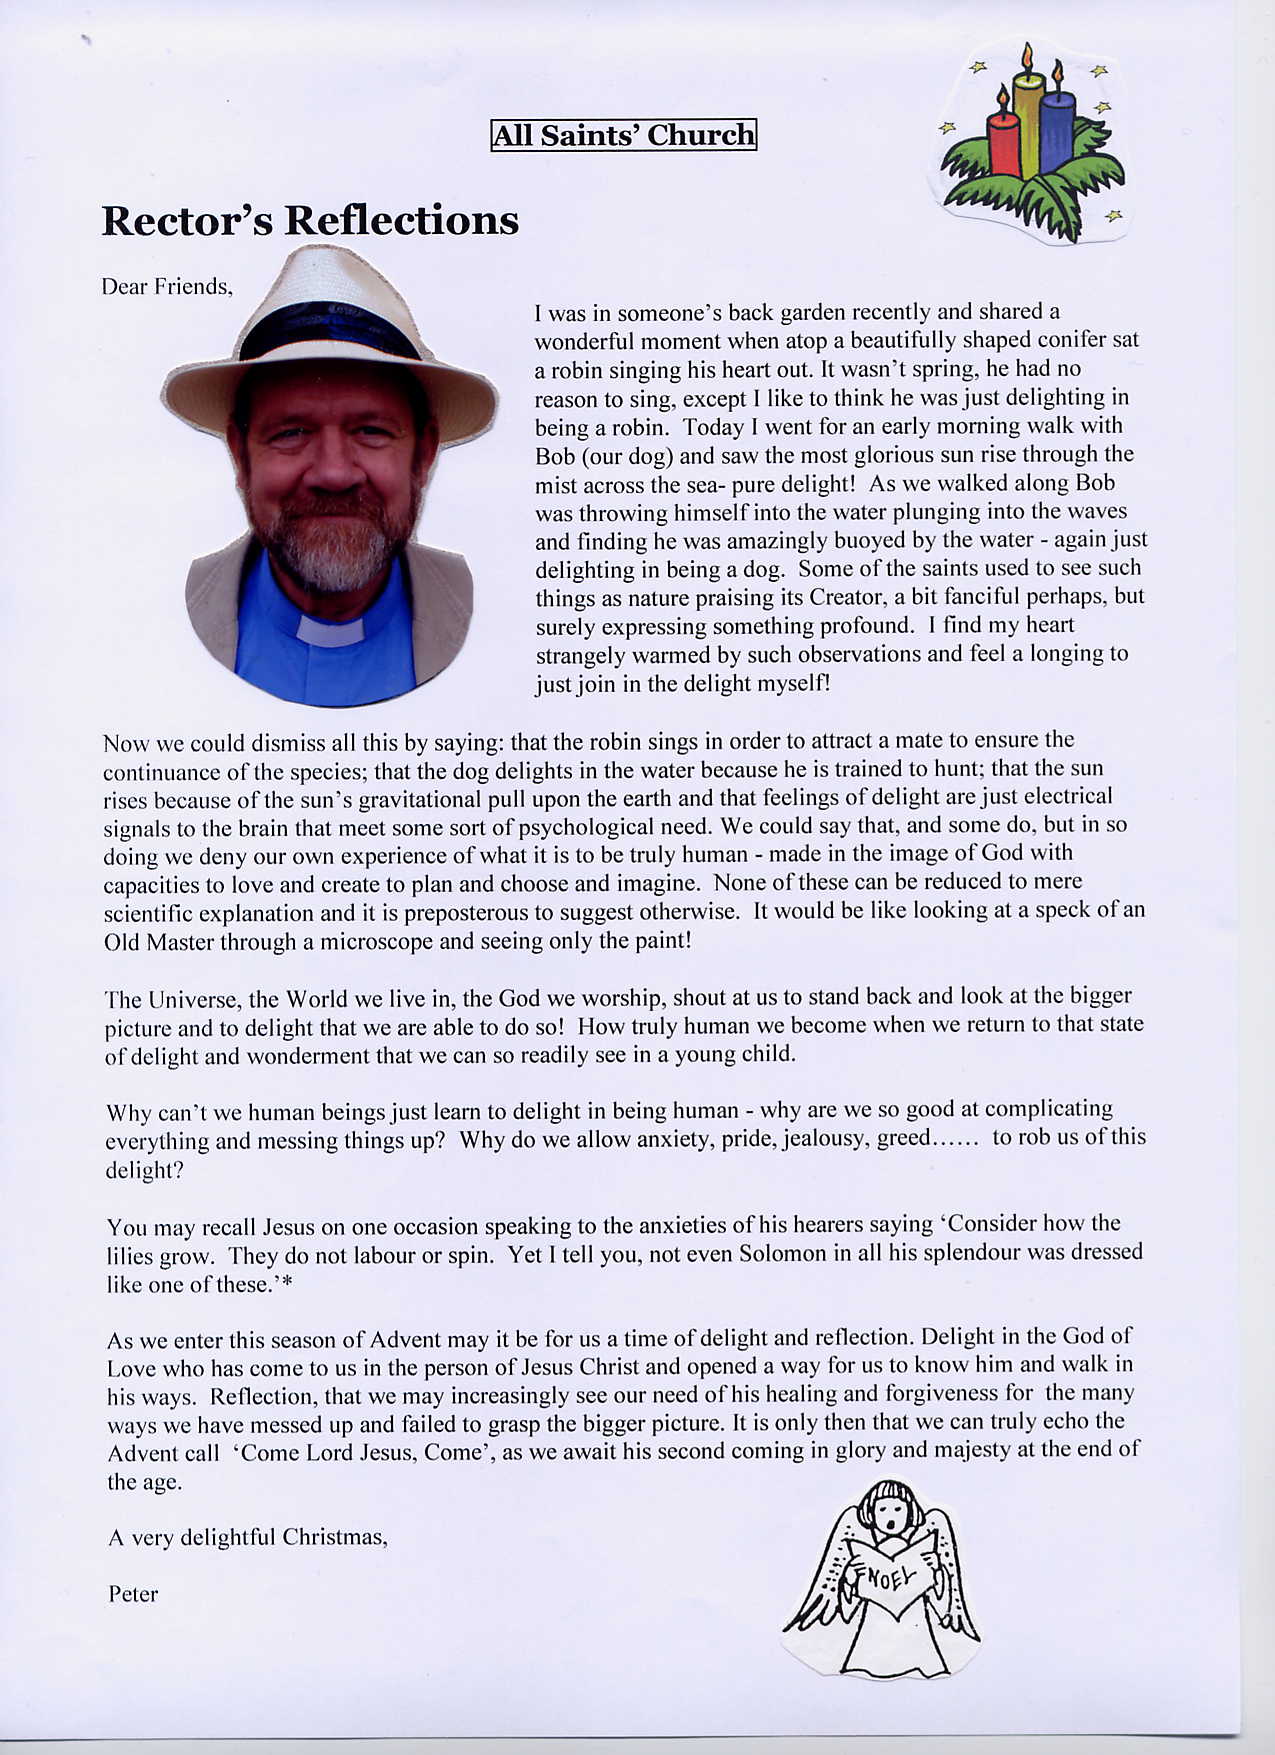 All Saints’ Church
Rector’s Reflections
Dear Friends,
I was in someone’s back garden recently and shared a
wonderful moment when atop a beautifully shaped conifer sat
a robin singing his heart out. It wasn’t spring, he had no
reason to sing, except I like to think he was just delighting in
being a robin.  Today I went for an early morning walk with
Bob (our dog) and saw the most glorious sun rise through the
mist across the sea- pure delight!  As we walked along Bob
was throwing himself into the water plunging into the waves
and finding he was amazingly buoyed by the water - again just
delighting in being a dog.  Some of the saints used to see such
things as nature praising its Creator, a bit fanciful perhaps, but
surely expressing something profound.  I find my heart
strangely warmed by such observations and feel a longing to
just join in the delight myself!
Now we could dismiss all this by saying: that the robin sings in order to attract a mate to ensure the
continuance of the species; that the dog delights in the water because he is trained to hunt; that the sun
rises because of the sun’s gravitational pull upon the earth and that feelings of delight are just electrical
signals to the brain that meet some sort of psychological need. We could say that, and some do, but in so
doing we deny our own experience of what it is to be truly human - made in the image of God with
capacities to love and create to plan and choose and imagine.  None of these can be reduced to mere
scientific explanation and it is preposterous to suggest otherwise.  It would be like looking at a speck of an
Old Master through a microscope and seeing only the paint!
The Universe, the World we live in, the God we worship, shout at us to stand back and look at the bigger
picture and to delight that we are able to do so!  How truly human we become when we return to that state
of delight and wonderment that we can so readily see in a young child.
Why can’t we human beings just learn to delight in being human - why are we so good at complicating
everything and messing things up?  Why do we allow anxiety, pride, jealousy, greed……  to rob us of this
delight?
You may recall Jesus on one occasion speaking to the anxieties of his hearers saying ‘Consider how the
lilies grow.  They do not labour or spin.  Yet I tell you, not even Solomon in all his splendour was dressed
like one of these.’*
As we enter this season of Advent may it be for us a time of delight and reflection. Delight in the God of
Love who has come to us in the person of Jesus Christ and opened a way for us to know him and walk in
his ways.  Reflection, that we may increasingly see our need of his healing and forgiveness for  the many
ways we have messed up and failed to grasp the bigger picture. It is only then that we can truly echo the
Advent call  ‘Come Lord Jesus, Come’, as we await his second coming in glory and majesty at the end of
the age.
A very delightful Christmas,
Peter
NOEL